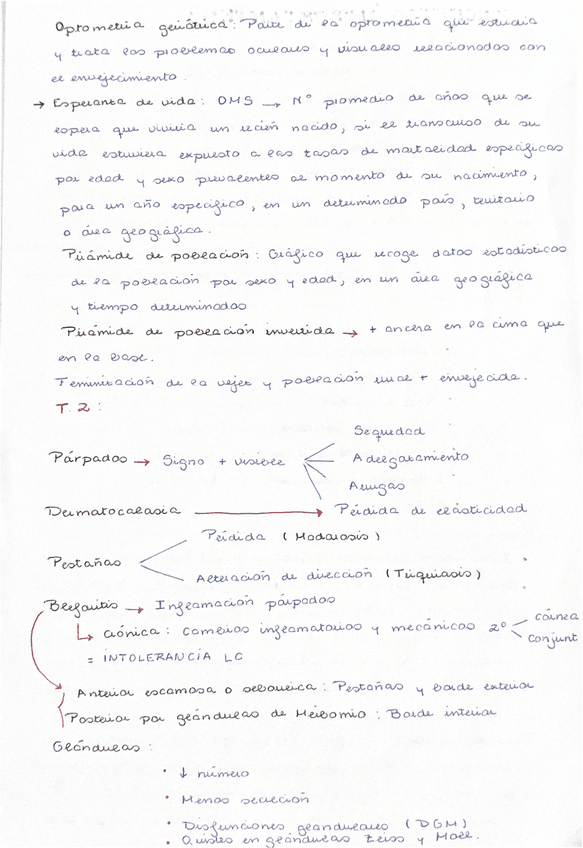 Optometría geriátrica: Parte de la optometría que estudia
y trata los problemas oculares y visuales relacionados con
el envejecimiento.
→ Esperanza de vida: OMS → Nº promedio de años que se
espera que viviría un recién nacido, si el transcurso de su
vida estuviera expuesto a las tasas de mortalidad específicas
por edad y sexo prevalentes al momento de su nacimiento,
para un año específico, en un determinado país, territorio
o área geográfica.
Pirámide de población: Gráfico que recoge datos estadísticos
de la población por sexo y edad, en un área geográfica
y tiempo determinados
Pirámide de población invertida → + ancha en la cima que
en la base.
Feminización de la vejez y población rural + envejecida.
T.2:
Sequedad
Párpados → Signo + visible
Adelgazamiento
Arrugas
Dermatocalasia → Pérdida de elasticidad
Pérdida (Madarosis)
Pestañas
Alteración de dirección (Triquiasis)
Blefaritis → Inflamación párpados
↳ crónica: Cambios inflamatorios y mecánicos 2º
córnea
conjunt
= INTOLERANCIA LC
Anterior escamosa o seborreica: Pestañas y borde exterior
Posterior por glándulas de Meibomio: Borde interior
Glándulas:
• ↓ número
• Menos secreción
• Disfunciones glandulares (DGM)
• Quistes en glándulas Zeiss y Moll.